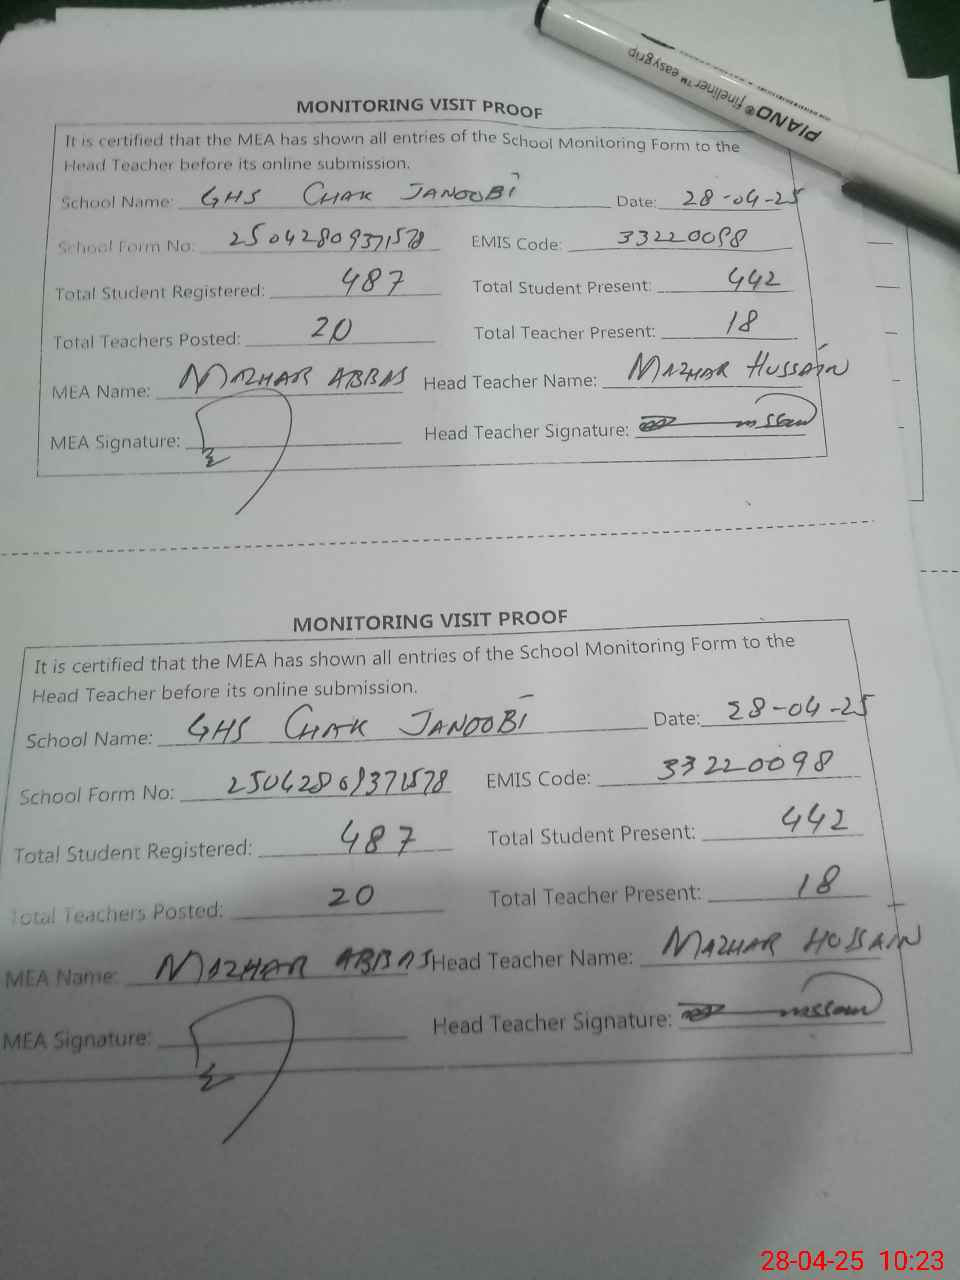 PIANO® fineliner™ easygrip
MONITORING VISIT PROOF
It is certified that the MEA has shown all entries of the School Monitoring Form to the
Head Teacher before its online submission.
School Name: GHS CHAK JANOOBI Date: 28-04-25
School Form No: 25042809371578 EMIS Code: 33220098
Total Student Registered: 487 Total Student Present: 442
Total Teachers Posted: 20 Total Teacher Present: 18
MEA Name: MAZHAR ABBAS Head Teacher Name: MAZHAR HUSSAIN
MEA Signature: Head Teacher Signature:
MONITORING VISIT PROOF
It is certified that the MEA has shown all entries of the School Monitoring Form to the
Head Teacher before its online submission.
School Name: GHS CHAK JANOOBI Date: 28-04-25
School Form No: 25042809371578 EMIS Code: 33220098
Total Student Registered: 487 Total Student Present: 442
Total Teachers Posted: 20 Total Teacher Present: 18
MEA Name: MAZHAR ABBAS Head Teacher Name: MAZHAR HUSSAIN
MEA Signature: Head Teacher Signature:
28-04-25 10:23